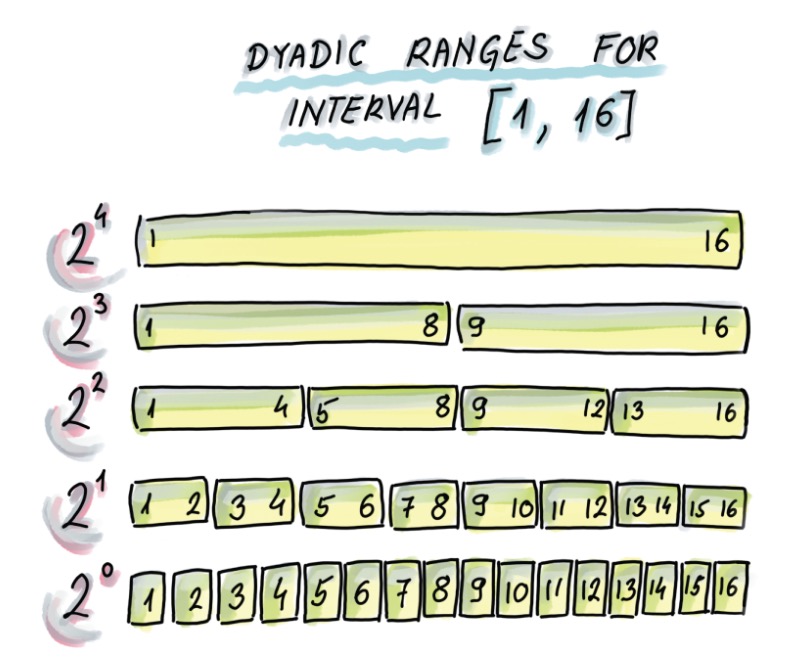 DYADIC RANGES FOR
INTERVAL [1, 16]
2^4 1 16
2^3 1 8 9 16
2^2 1 4 5 8 9 12 13 16
2^1 1 2 3 4 5 6 7 8 9 10 11 12 13 14 15 16
2^0 1 2 3 4 5 6 7 8 9 10 11 12 13 14 15 16